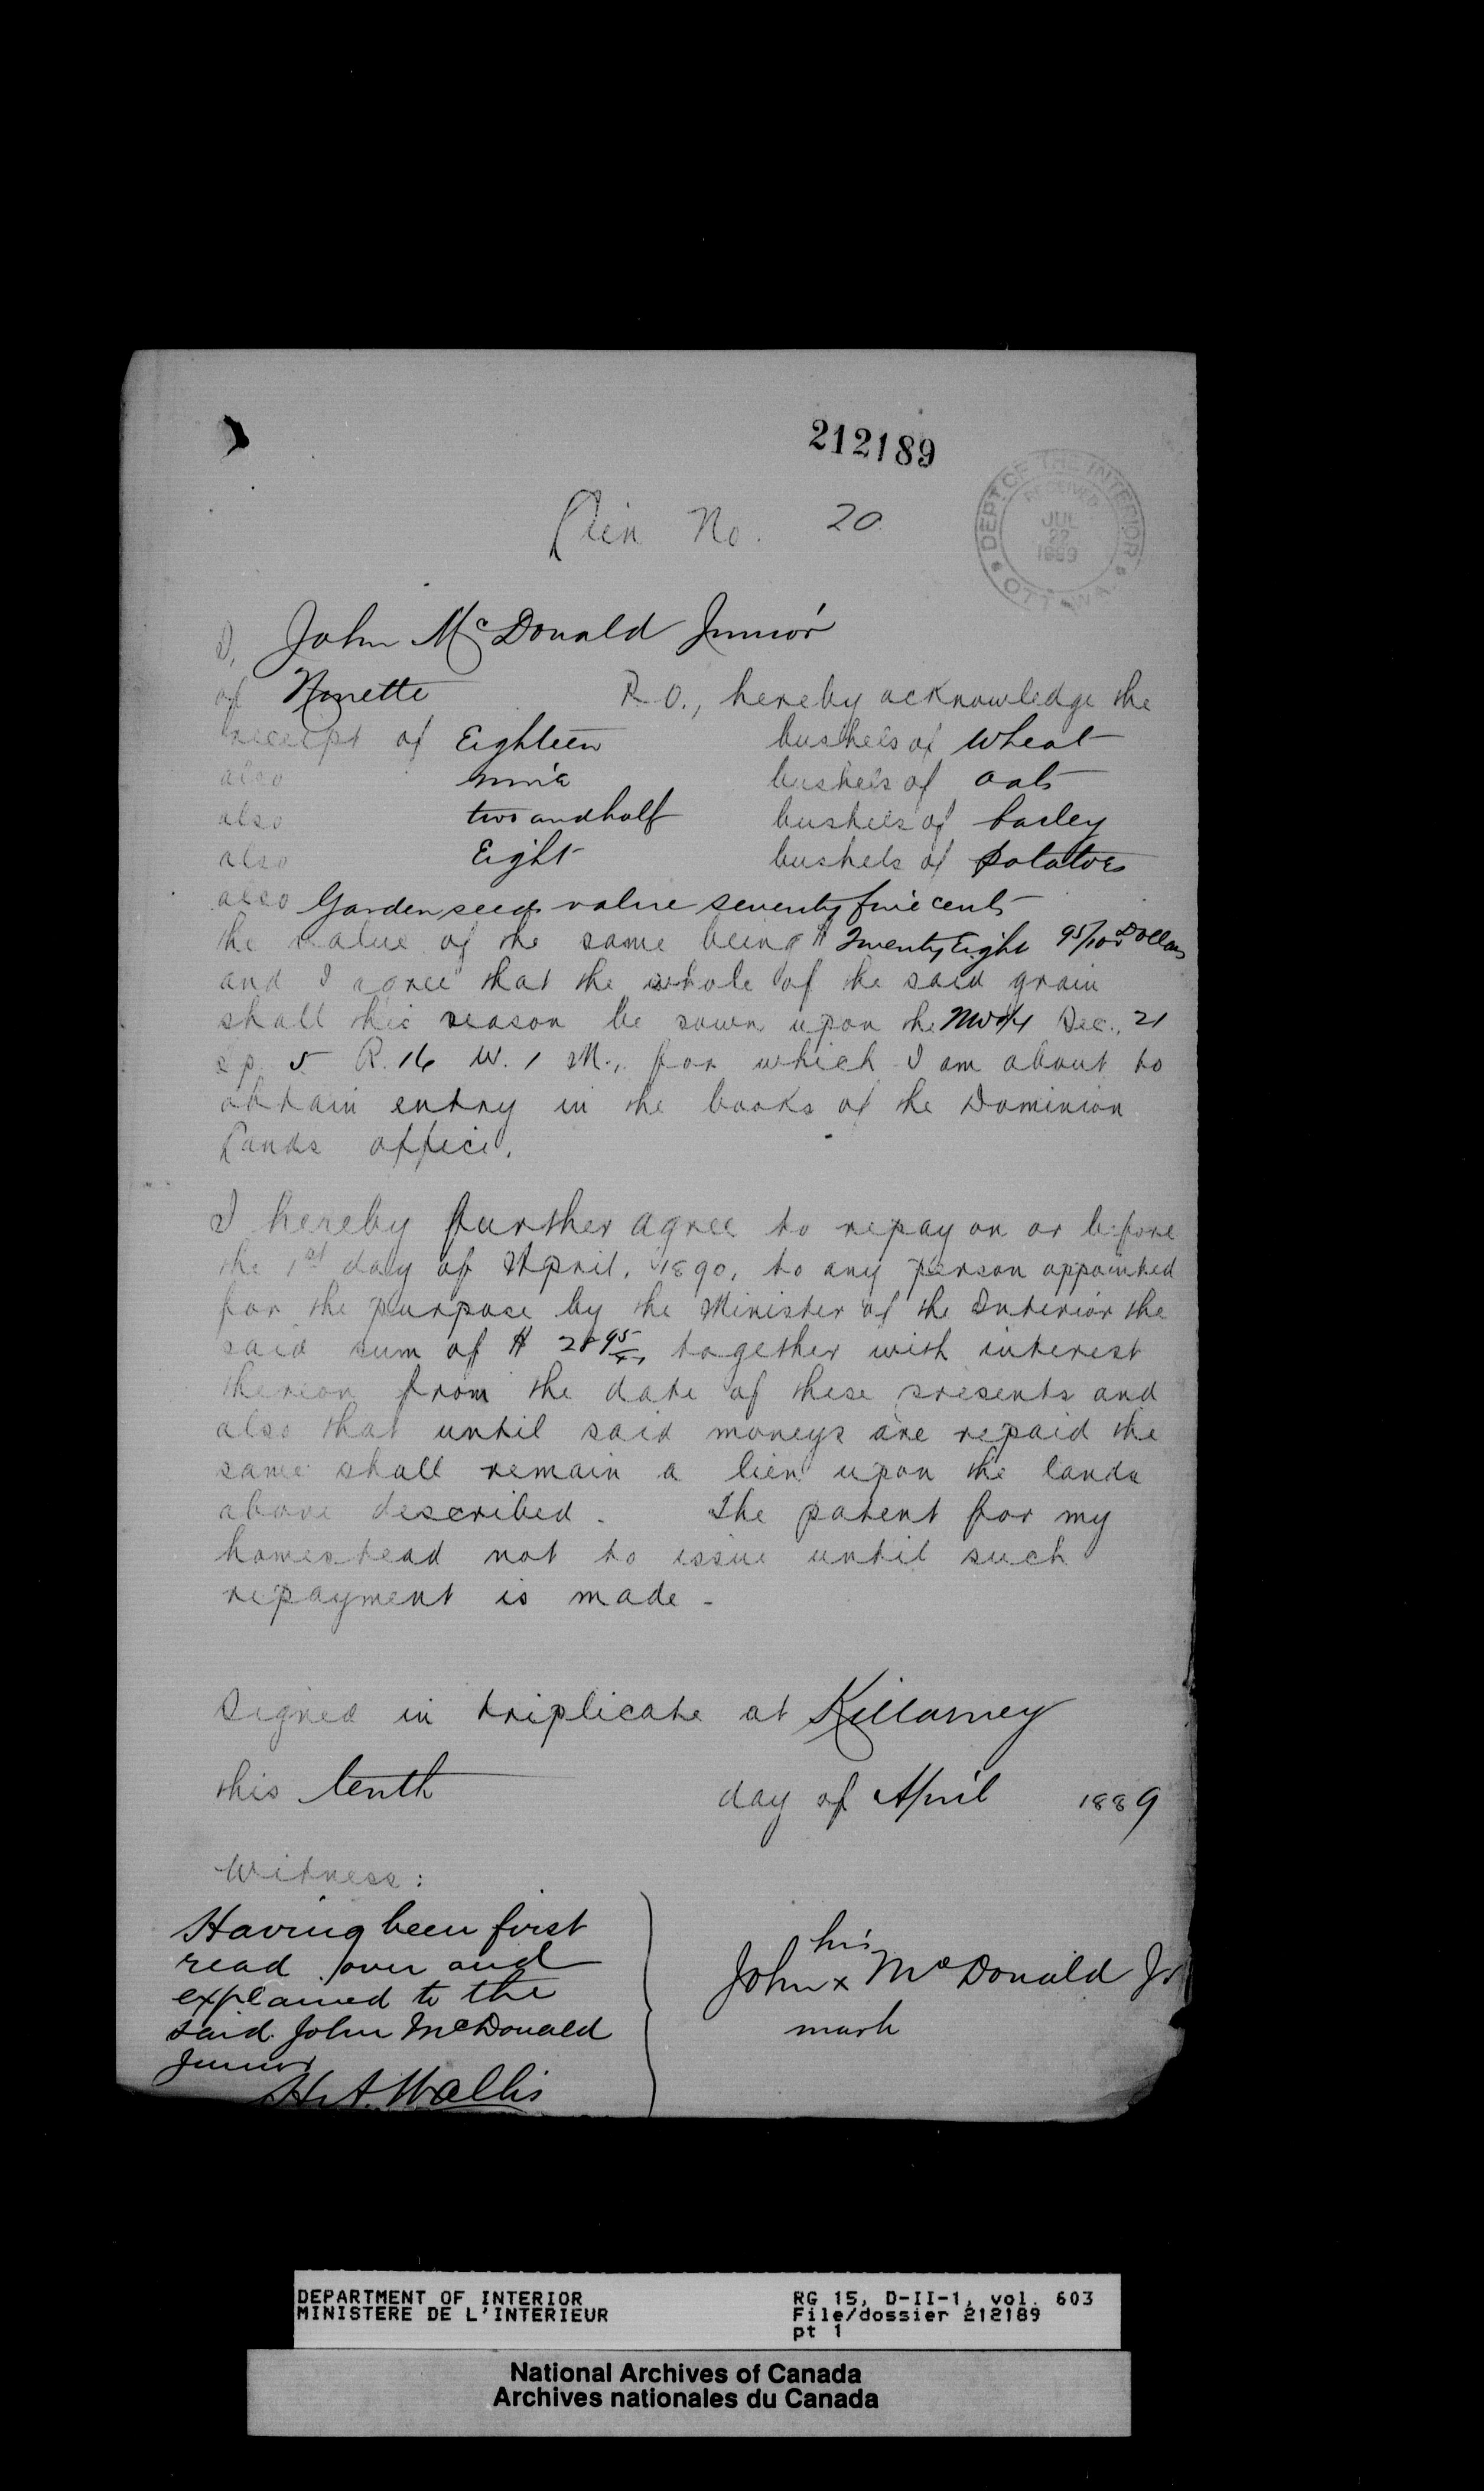 212189
Lien No. 20
DEPT OF THE INTERIOR
RECEIVED
JUL
22
1889
OTTAWA
I, John McDonald Junior
of Ninette P.O., hereby acknowledge the
receipt of Eighteen bushels of Wheat
also nine bushels of oats
also two and half bushels of barley
also Eight bushels of potatoes
also Garden seeds value seventy five cents
the value of the same being $ Twenty Eight 95/100 Dollars
and I agree that the whole of the said grain
shall this season be sown upon the NW 1/4 Sec., 21
Tp. 5 R. 16 W. 1 M., for which I am about to
obtain entry in the books of the Dominion
Lands office.
I hereby further agree to repay on or before
the 1st day of April, 1890, to any person appointed
for the purpose by the Minister of the Interior the
said sum of $ 28 95/xx, together with interest
thereon from the date of these presents and
also that until said moneys are repaid the
same shall remain a lien upon the lands
above described. The patent for my
homestead not to issue until such
repayment is made -
Signed in triplicate at Killarney
this tenth day of April 1889
Witness:
Having been first
read over and
explained to the
said John McDonald
Junior
H.A. Wallis
his
John x McDonald Jr
mark
DEPARTMENT OF INTERIOR
MINISTERE DE L'INTERIEUR
RG 15, D-II-1, vol. 603
File/dossier 212189
pt 1
National Archives of Canada
Archives nationales du Canada